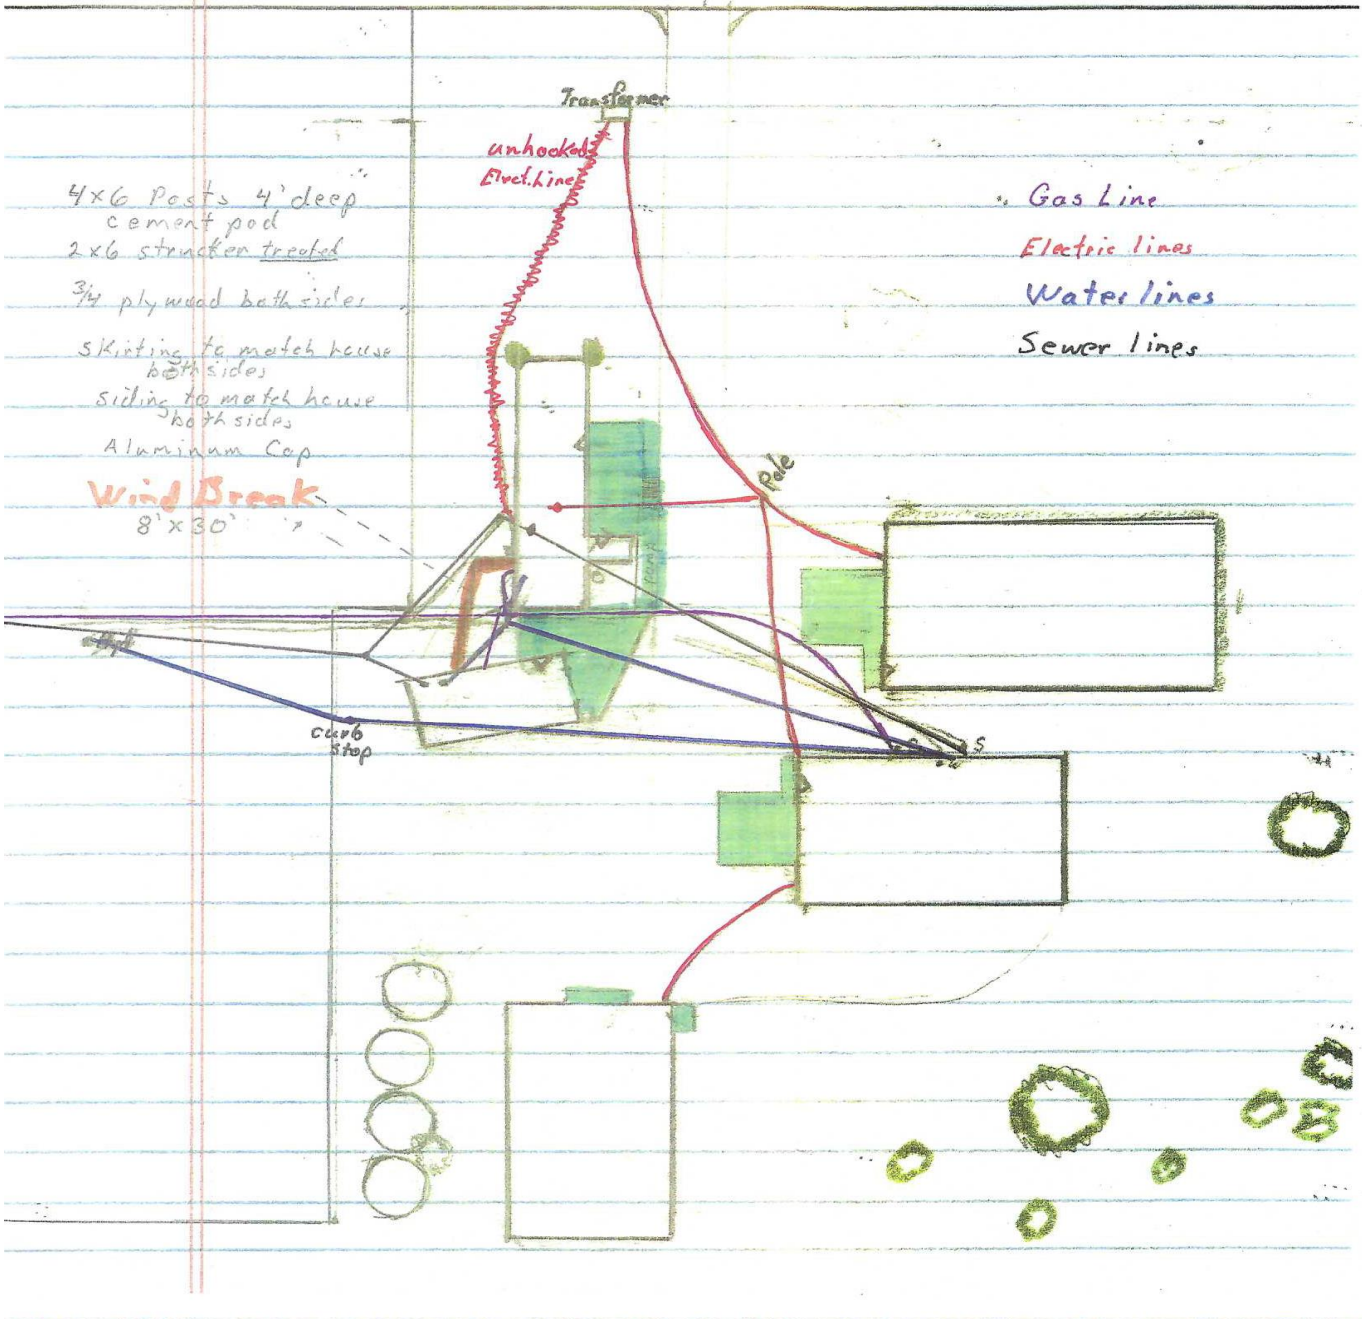 Transformer
unhooked
Elect. Line
4x6 Posts 4' deep
cement pod
2x6 strucker treated
3/4 plywood both sides
skirting to match house
both sides
siding to match house
both sides
Aluminum Cap
Wind Break
8' x 30'
Gas Line
Electric lines
Water lines
Sewer lines
Pole
ramp
curb
stop
S
W